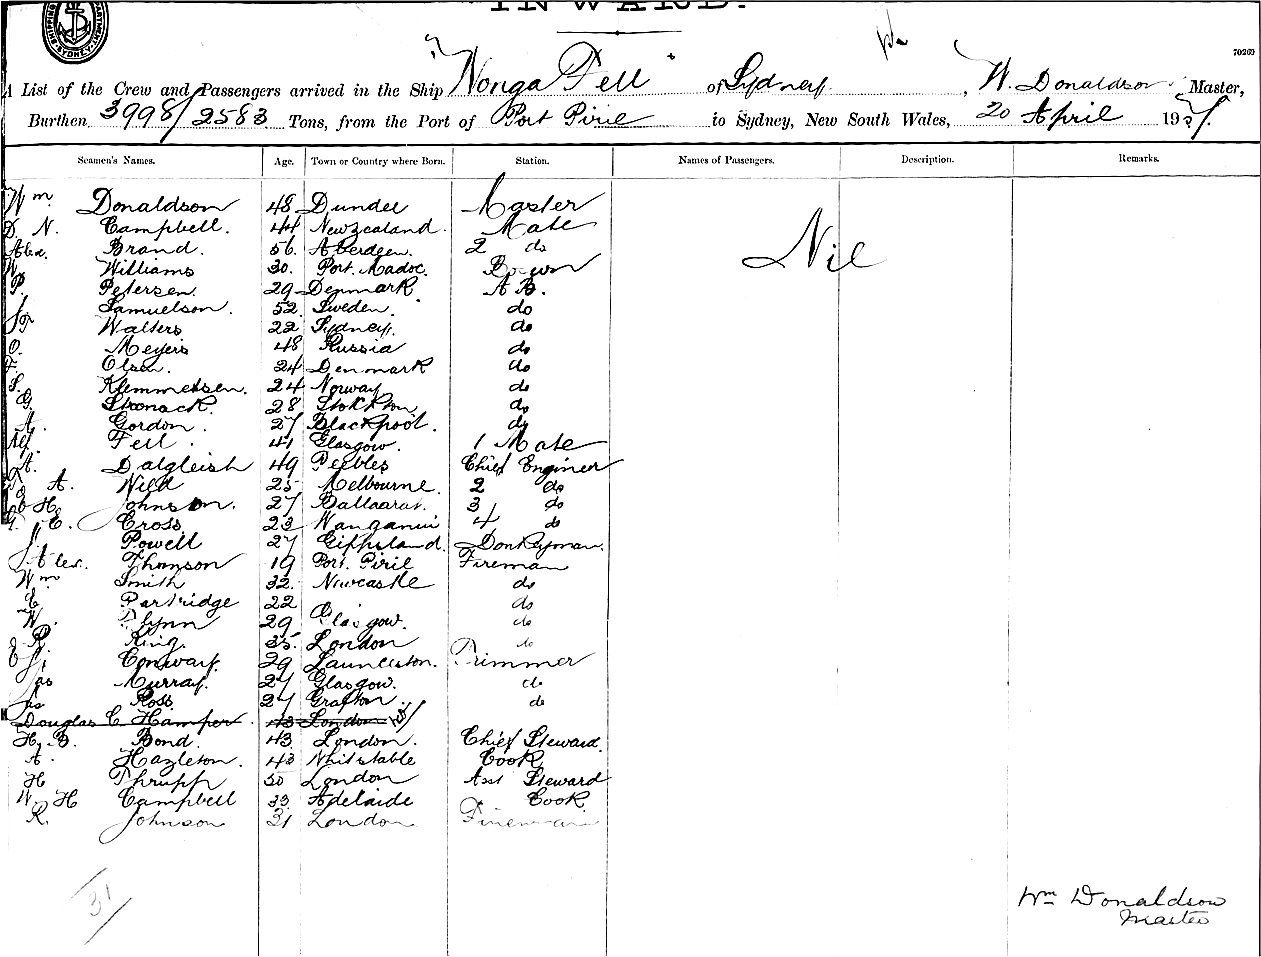 INWARD.
SHIPPING DEPARTMENT SYDNEY
70269
A List of the Crew and Passengers arrived in the Ship "Nonga Fell" of Sydney, W. Donaldson Master,
Burthen 3998/2583 Tons, from the Port of Port Pirie to Sydney, New South Wales, 20 April 19
Seamen's Names. Age. Town or Country where Born. Station. Names of Passengers. Description. Remarks.
Wm Donaldson 48 Dundee Master
D. N. Campbell. 44 New Zealand. Mate
Alex. Brand. 56. Aberdeen. 2 do Nil
W. Williams 30. Port. Madoc. Bo-swn
P. Petersen. 29 Denmark A B.
Samuelson. 52. Sweden. do
Walters 22 Sydney. do
O. Meyers 48 Russia do
F. Olsen. 24 Denmark do
S. Klemmetsen. 24 Norway do
G. Stonack. 28 Stockton do
A. Gordon. 27 Blackpool. do
Fell. 41 Glasgow. 1 Mate
A. Dalgleish 49 Peebles Chief Engineer
A. Nild 25 Melbourne. 2 do
H. Johnson. 27 Ballaarat. 3 do
G. E. Cross 23 Wanganui 4 do
Powell 27 Gippsland. Donkeyman.
Alex. Thomson 19 Port. Pirie Fireman
Wm Smith 32. Newcastle do
E Partridge 22 do
W. Flynn 29 Glasgow. do
R. King. 35. London do
Conway. 29 Launceston. Trimmer
Jas Murray. 27 Glasgow. do
Js Ross 27 Grafton. do
Douglas C. Hamper 43 London
H. B. Bond. 43. London. Chief Steward.
A. Hazleton. 43 Whitstable Cook
H Thrupp 50 London Asst Steward
W H Campbell 33 Adelaide Cook
R. Johnson 31 London Fireman
31
Wm Donaldson
Master